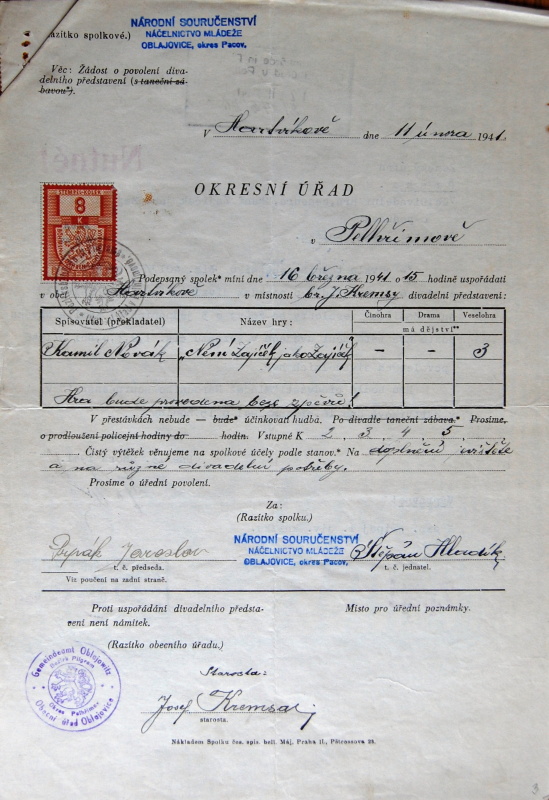 NÁRODNÍ SOURUČENSTVÍ
NÁČELNICTVO MLÁDEŽE
OBLAJOVICE, okres Pacov.
(Razítko spolkové.)
Věc: Žádost o povolení diva-
delního představení (s taneční zá-
bavou*).
V Hartvíkově dne 11 února 1941.
OKRESNÍ ÚŘAD
v Pelhřimově
8
K
Podepsaný spolek* míní dne 16 března 1941 o 15 hodině uspořádati
v obci Hartvíkově v místnosti br. J. Kremsy divadelní představení:
Spisovatel (překladatel) Název hry: Činohra Drama Veselohra
má dějství**
Kamil Novák „Není Zajíček jako Zajíček" – – 3
Hra bude provedena beze zpěvů!
V přestávkách nebude — bude* účinkovati hudba. Po divadle taneční zábava.* Prosíme,
o prodloužení policejní hodiny do hodin. Vstupné K 2, 3, 4, 5
Čistý výtěžek věnujeme na spolkové účely podle stanov.* Na doplnění
a na různé divadelní potřeby.
Prosíme o úřední povolení.
Za:
(Razítko spolku.)
NÁRODNÍ SOURUČENSTVÍ
NÁČELNICTVO MLÁDEŽE
OBLAJOVICE, okres Pacov.
Jaroslav Štěpán Hladík
t. č. předseda. t. č. jednatel.
Viz poučení na zadní straně.
Proti uspořádání divadelního předsta-
vení není námitek.
Místo pro úřední poznámky.
(Razítko obecního úřadu.)
Gemeindeamt Oblajowitz
Bezirk Pilgram
Okres Pelhřimov
Obecní úřad Oblajovice
Starosta:
Josef Kremsa
starosta.
Nákladem Spolku čes. spis. bell. Máj, Praha II., Pštrossova 23.